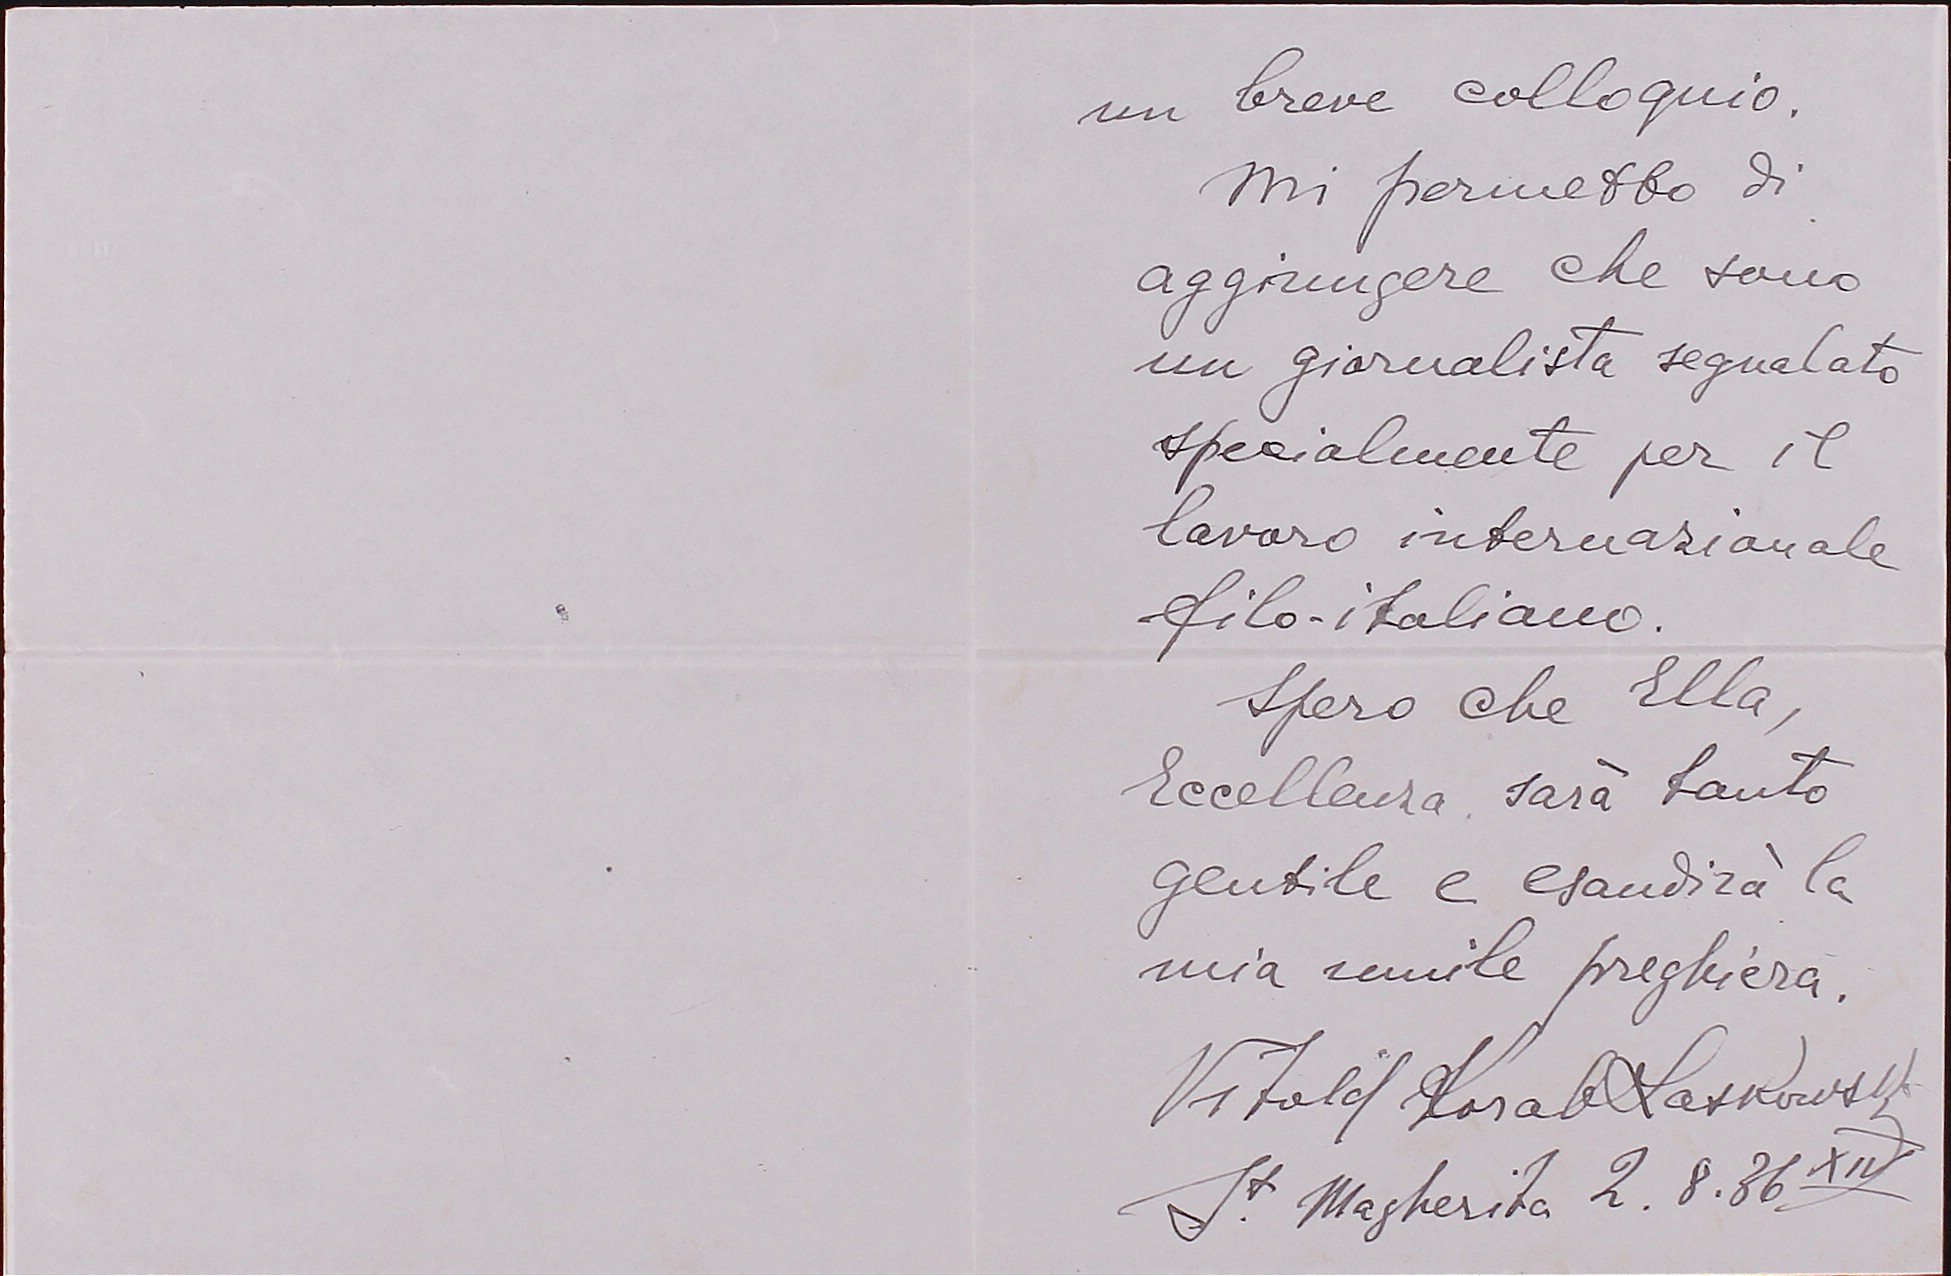 un breve colloquio.
Mi permetto di
aggiungere che sono
un giornalista segnalato
specialmente per il
lavoro internazionale
filo-italiano.
Spero che Ella,
Eccellenza, sarà tanto
gentile e esaudirà la
mia umile preghiera.
Vitold Korab Laskowski
St. Magherita 2.8.36 XIV